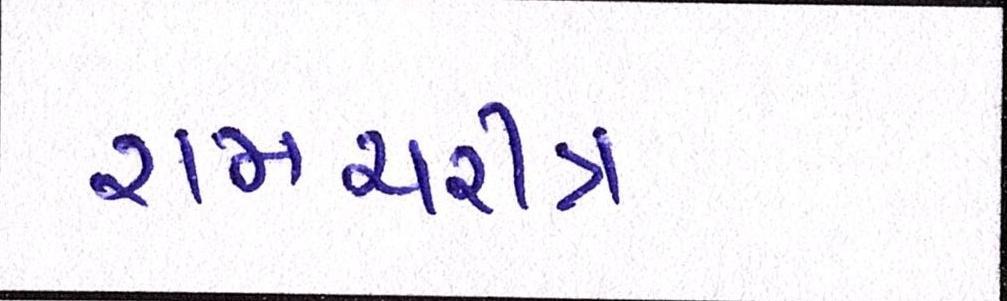 રામચરીત્ર